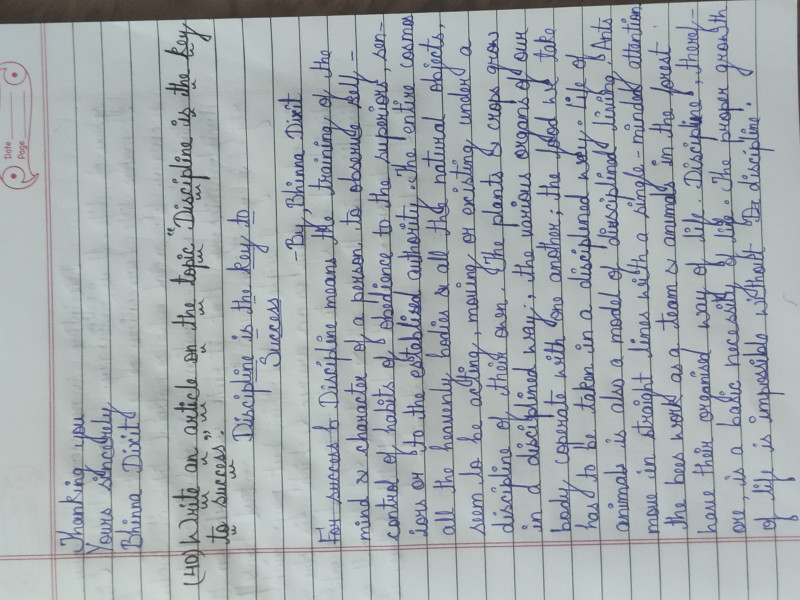 Date
Page
Thanking you
Yours sincerely
Bhinna Dixit
(40) Write an article on the topic "Discipline is the key
to success."
Discipline is the key to
Success
- By, Bhinna Dixit
For success & Discipline means the training of the
mind & character of a person to observe self-
control of habits of obidience to the superiours, sen-
iors or to the establised authority. The entire cosmos
all the heavenly bodies & all the natural objects,
seem to be acting, moving or existing under a
discipline of their own. The plants & crops grow
in a disciplined way; the various organs of our
body coprate with one another; the food we take
has to be taken in a disciplined way; life of
animals is also a model of diesciplined living. Ants
move in straight lines with a single-minded attention
the bees work as a team & animals in the forest
have their organised way of life. Discipline, theref-
ore, is a basic necessity of life. The proper growth
of life is impossible without discipline.